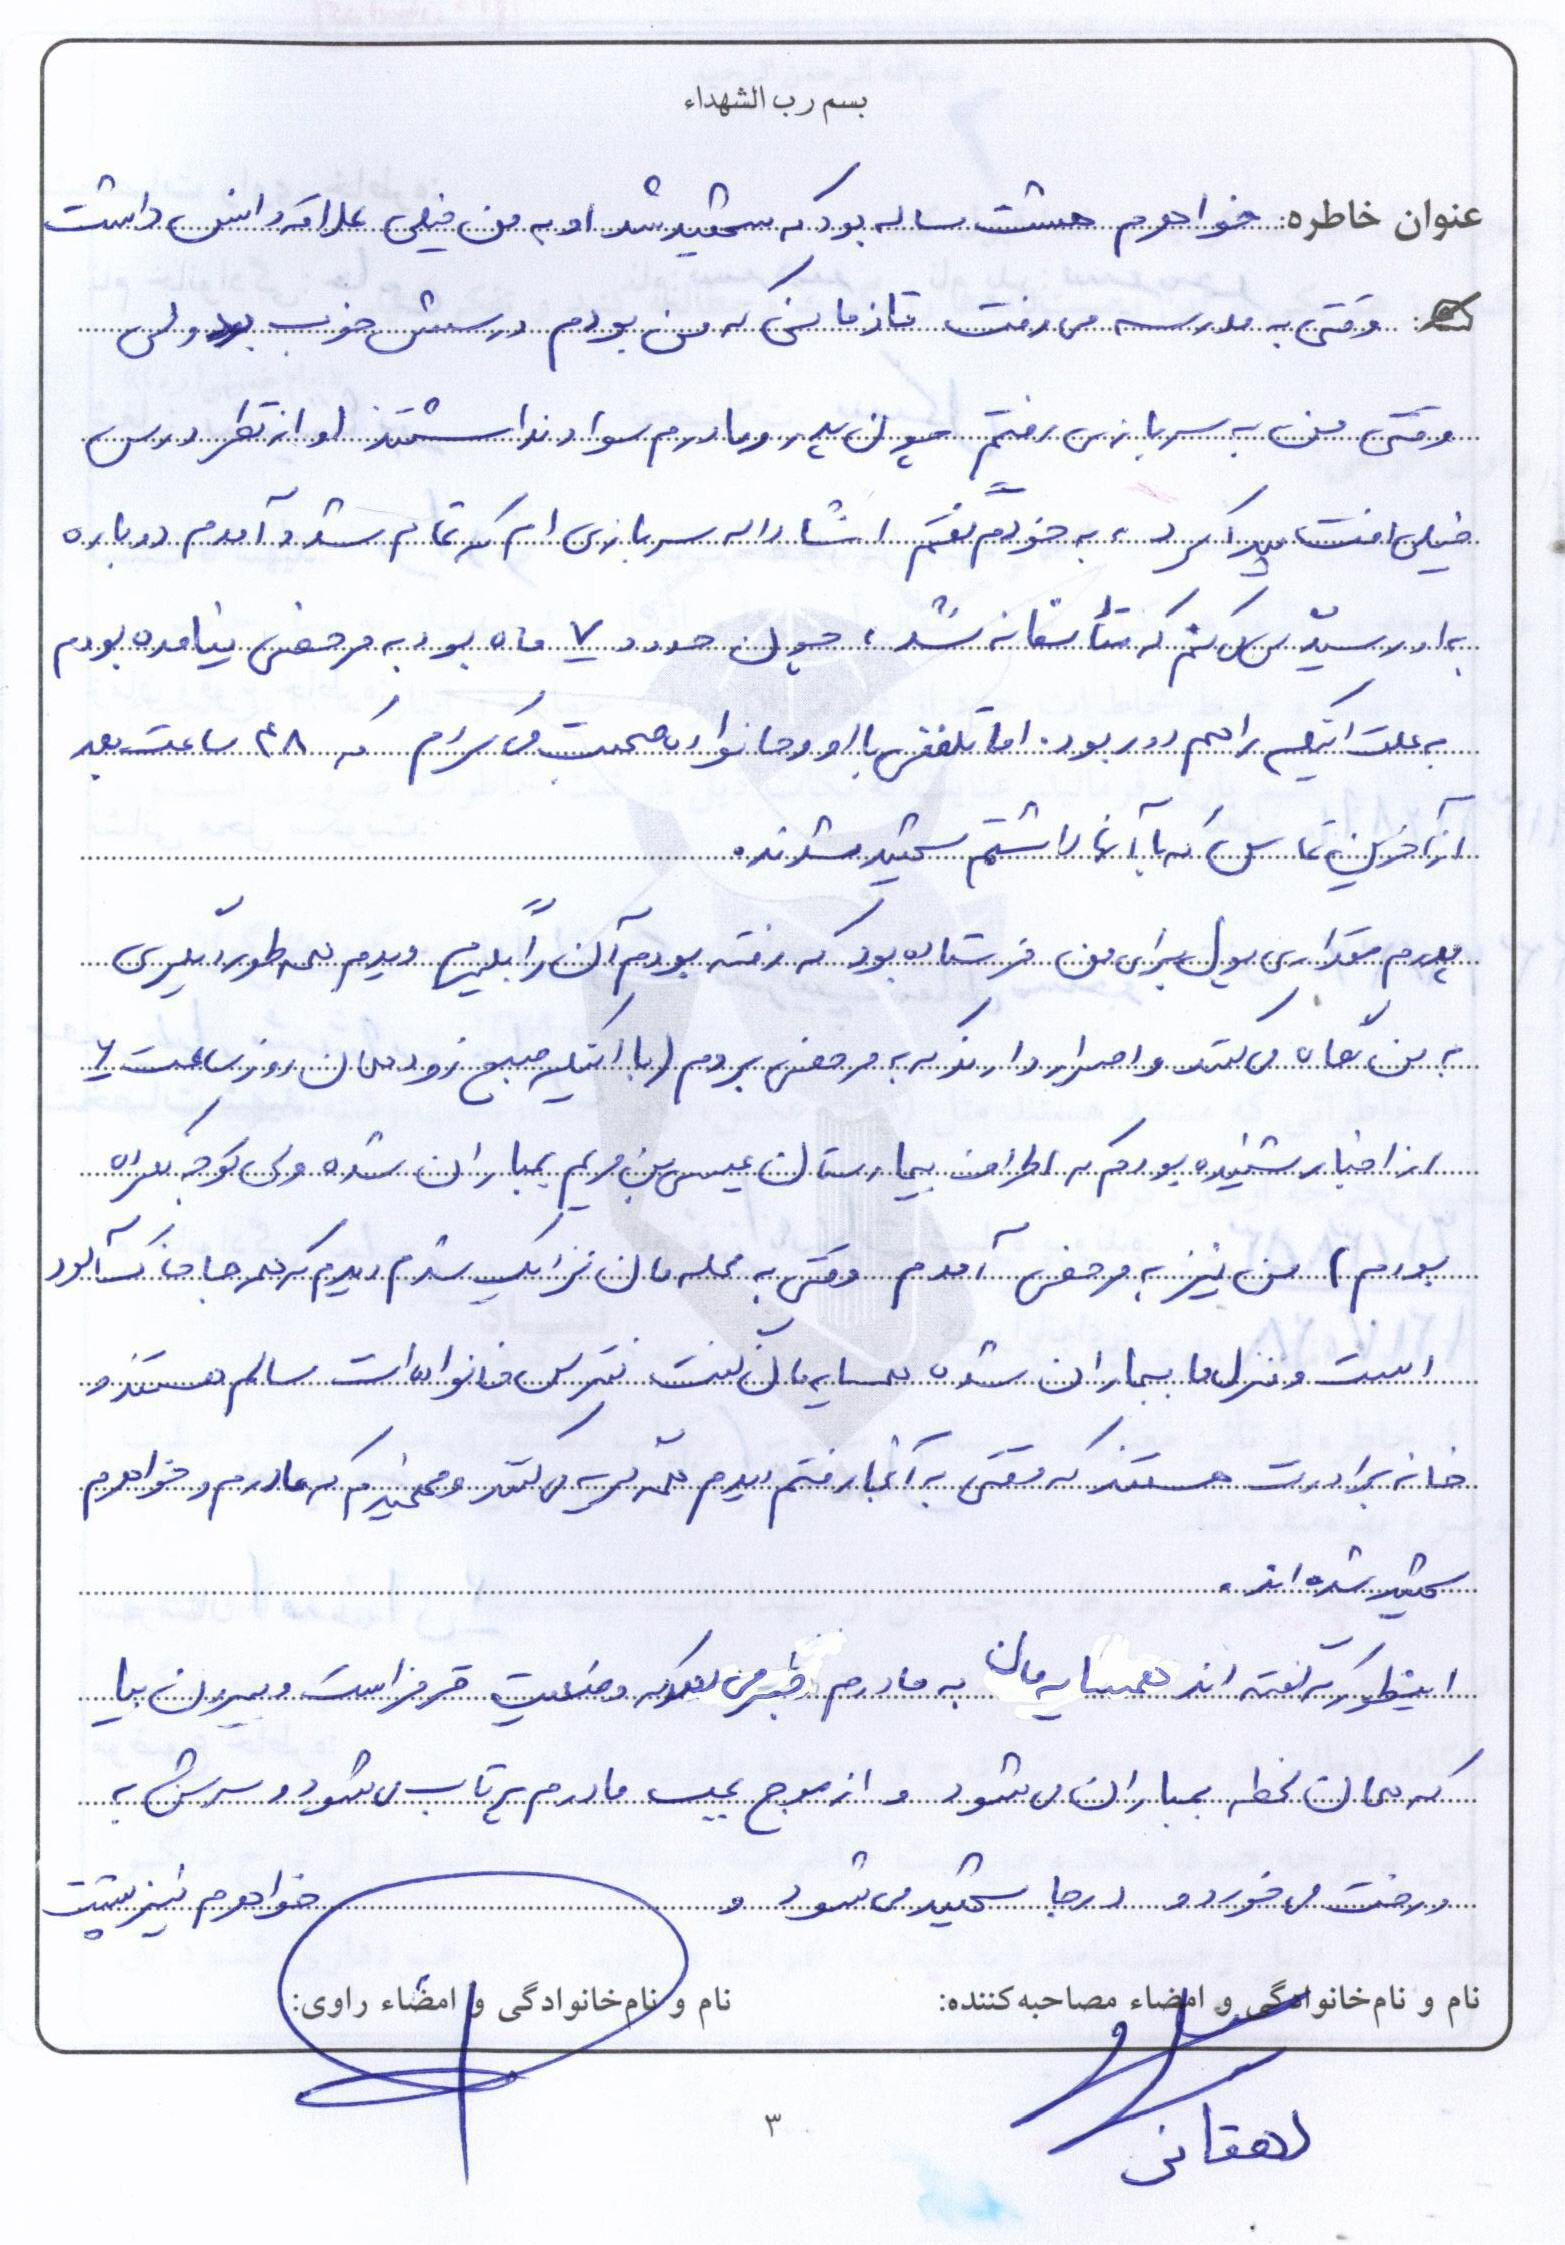 بسم رب الشهداء
عنوان خاطره: خواهرم هشت ساله بود که شهید شد او به من خیلی علاقه داشت
وقتی به مدرسه می رفت تا زمانی که من بودم درسش خوب بود ولی
وقتی من به سربازی رفتم چون پدر و مادرم سواد نداشتند او از نظر درسی
خیلی افت پیدا کرد، به خودم گفتم انشاءالله سربازی ام که تمام شد و آمدم دوباره
به او رسیدگی می کنم که متأسفانه نشد، چون حدود ۷ ماه بود به مرخصی نیامده بودم
به علت اینکه راهم دور بود. اما تلفنی با او و خانواده صحبت می کردم که ۴۸ ساعت بعد
از آخرین تماسی که با آنها داشتم شهید شدند.
پدرم مقداری پول برای من فرستاده بود که رفته بودم آن را بگیرم دیدم همه طور دیگری
به من نگاه می کنند و اصرار دارند که به مرخصی بروم (با اینکه صبح زود همان روز ساعت ۶
از اخبار شنیده بودم که اطراف بیمارستان عیسی بن مریم بمباران شده ولی توجه نکرده
بودم) من نیز به مرخصی آمدم وقتی به محله مان نزدیک شدم دیدم که همه جا خاک آلود
است و منزل ما بمباران شده همسایه مان گفت نترس خانواده ات سالم هستند و
خانه برادرت هستند که وقتی به آنجا رفتم دیدم همه گریه می کنند و فهمیدم که مادرم و خواهرم
شهید شده اند.
اینطور که گفته اند همسایه مان به مادرم که وضعیت قرمز است و بیرون بیا
که همان لحظه بمباران می شود و از موج بمب مادرم پرتاب می شود و سرش به
درخت می خورد و درجا شهید می شود و خواهرم نیز پشت
نام و نام‌خانوادگی و امضاء مصاحبه‌کننده:
نام و نام‌خانوادگی و امضاء راوی:
دهقانی
۳